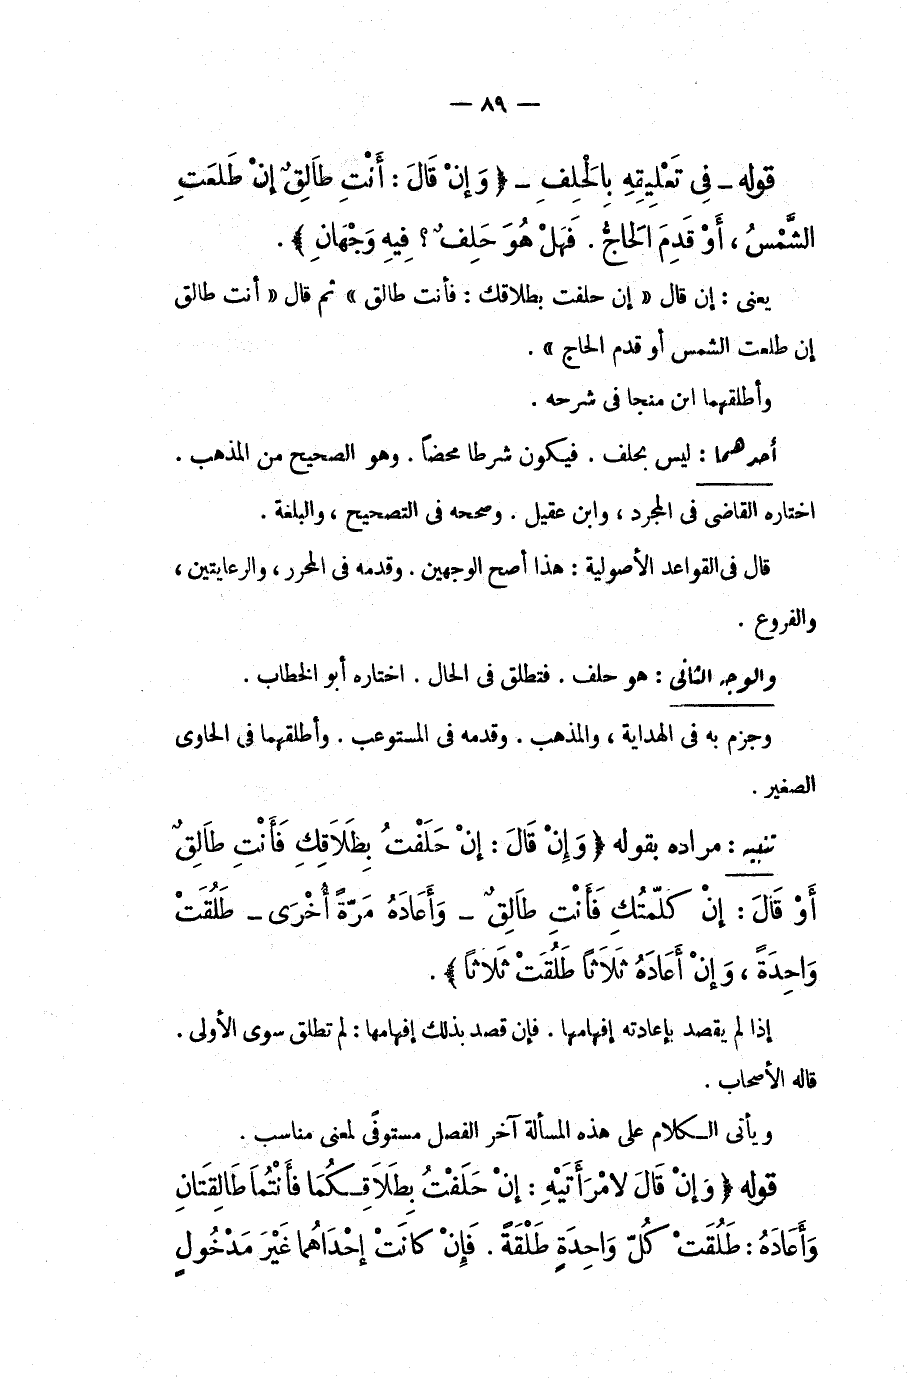 — ٨٩ —
قوله ـ فِى تَعْلِيقِهِ بِالْحَلِفِ ـ ﴿ وَإِنْ قَالَ : أَنْتِ طَالِقٌ إِنْ طَلَعَتِ
الشَّمْسُ ، أَوْ قَدِمَ الحَاجُّ . فَهَلْ هُوَ حَلِفٌ ؟ فِيهِ وَجْهَانِ ﴾ .
يعنى : إن قال « إن حلفت بطلاقك : فأنت طالق » ثم قال « أنت طالق
إن طلعت الشمس أو قدم الحاج » .
وأطلقهما ابن منجا فى شرحه .
أحدهما : ليس بحلف . فيكون شرطا محضاً . وهو الصحيح من المذهب .
اختاره القاضى فى المجرد ، وابن عقيل . وصححه فى التصحيح ، والبلغة .
قال فى القواعد الأصولية : هذا أصح الوجهين . وقدمه فى المحرر ، والرعايتين ،
والفروع .
والوجه الثانى : هو حلف . فتطلق فى الحال . اختاره أبو الخطاب .
وجزم به فى الهداية ، والمذهب . وقدمه فى المستوعب . وأطلقهما فى الحاوى
الصغير .
تنبيه : مراده بقوله ﴿ وَإِنْ قَالَ : إِنْ حَلَفْتُ بِطَلَاقِكِ فَأَنْتِ طَالِقٌ
أَوْ قَالَ : إِنْ كَلَّمْتُكِ فَأَنْتِ طَالِقٌ ـ وَأَعَادَهُ مَرَّةً أُخْرَى ـ طَلُقَتْ
وَاحِدَةً ، وَإِنْ أَعَادَهُ ثَلَاثاً طَلُقَتْ ثَلَاثاً ﴾ .
إذا لم يقصد بإعادته إفهامها . فإن قصد بذلك إفهامها : لم تطلق سوى الأولى .
قاله الأصحاب .
ويأتى الـكلام على هذه المسألة آخر الفصل مستوفًى لمعنى مناسب .
قوله ﴿ وَإِنْ قَالَ لامْرَأَتَيْهِ : إِنْ حَلَفْتُ بِطَلَاقِـكُمَا فَأَنْتُمَا طَالِقَتَانِ
وَأَعَادَهُ : طَلُقَتْ كُلّ وَاحِدَةٍ طَلْقَةً . فَإِنْ كَانَتْ إِحْدَاهُما غَيْرَ مَدْخُولٍ